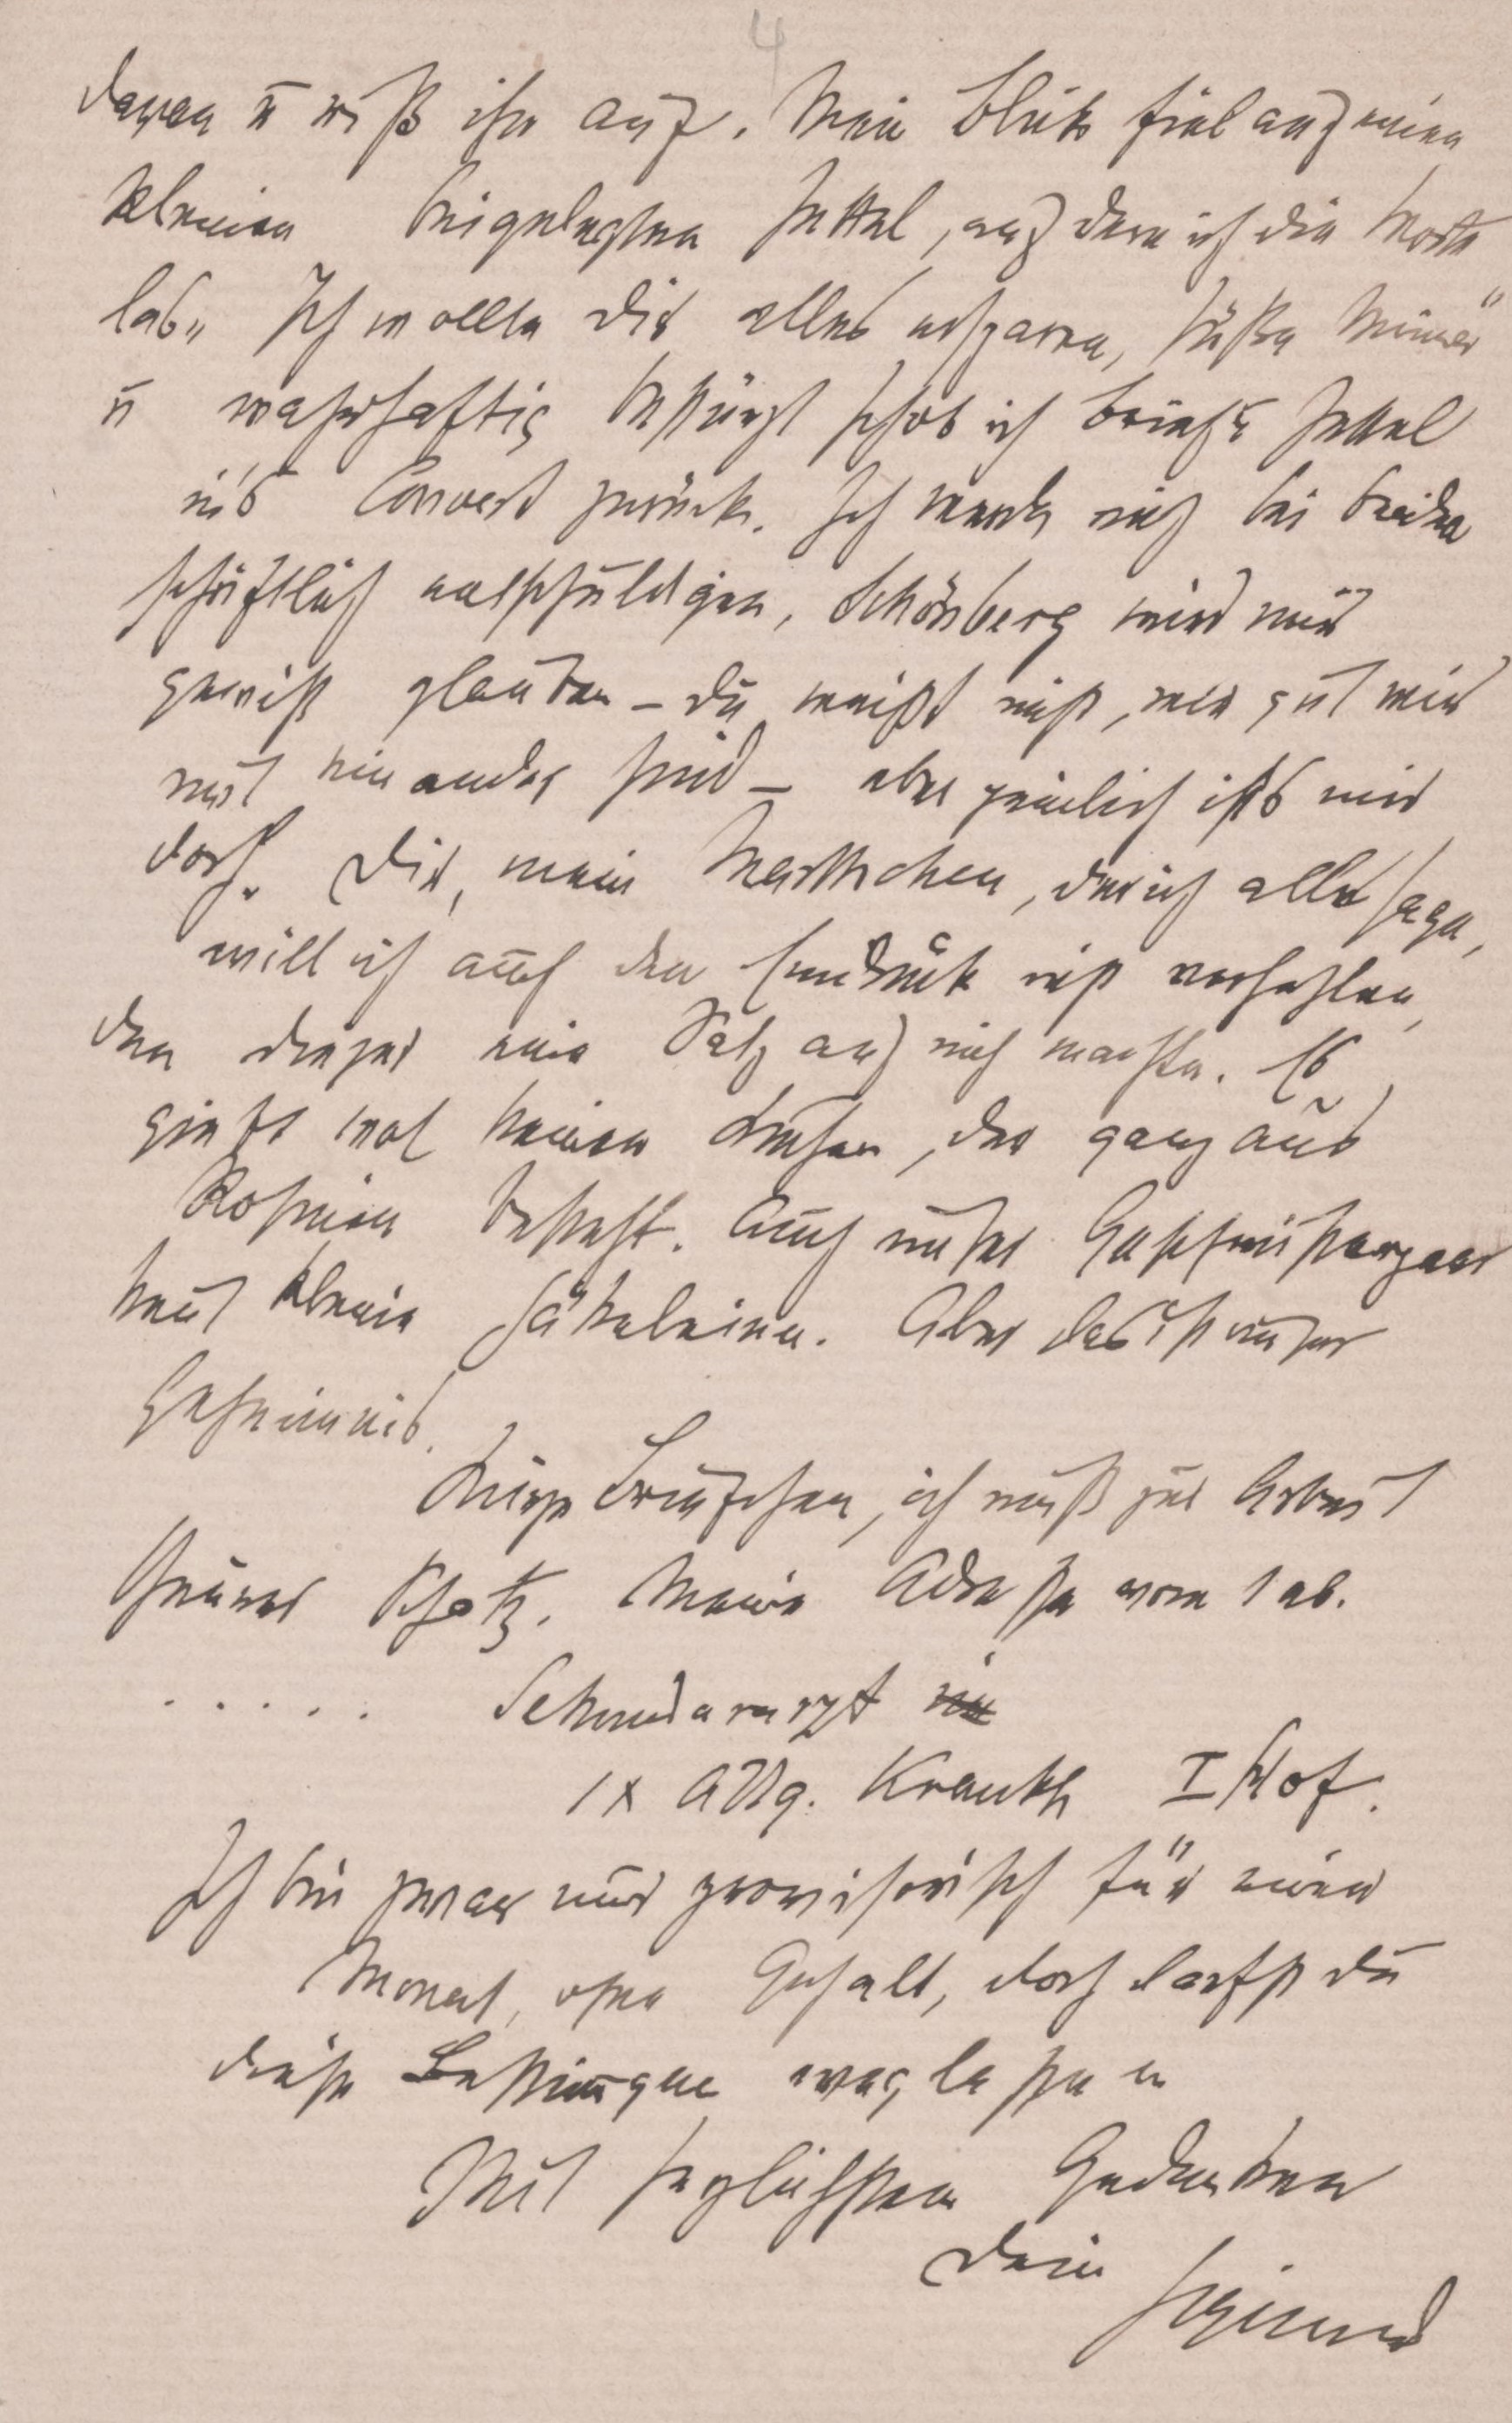 4
davon u riß ihn auf. Mein Blick fiel auf einen
kleinen beigelegten Zettel, auf dem ich die Worte
las „Ich wollte Dir alles ersparen, süße Minna“
u wahrhaftig bestürzt schob ich Brief u Zettel
ins Couvert zurück. Ich werde mich bei beiden
schriftlich entschuldigen, Schönberg wird mir
gewiß glauben – du weißt nicht, wie gut wir
mit einander sind – aber peinlich ists mir
doch. Dir, mein Marthchen, der ich alles sage,
will ich auch den Eindruck nicht verhehlen,
den dieser eine Satz auf mich machte. Es
giebt wol keinen Kuchen, der ganz aus
Rosinen besteht. Auch unser Geschwisterpaar
hat kleine Häkeleien. Aber das ist unser
Geheimnis.
Kurze Briefchen, ich muß zur Arbeit
theurer Schatz. Meine Adresse vom 1 ab.
. . . . . Sekundararzt
Allg. Krankh I Hof.
Ich bin zwar nur provisorisch für einen
Monat, ohne Gehalt, doch darfst du
diese weglassen
Mit herzlichsten Gedanken
Dein Sigmund